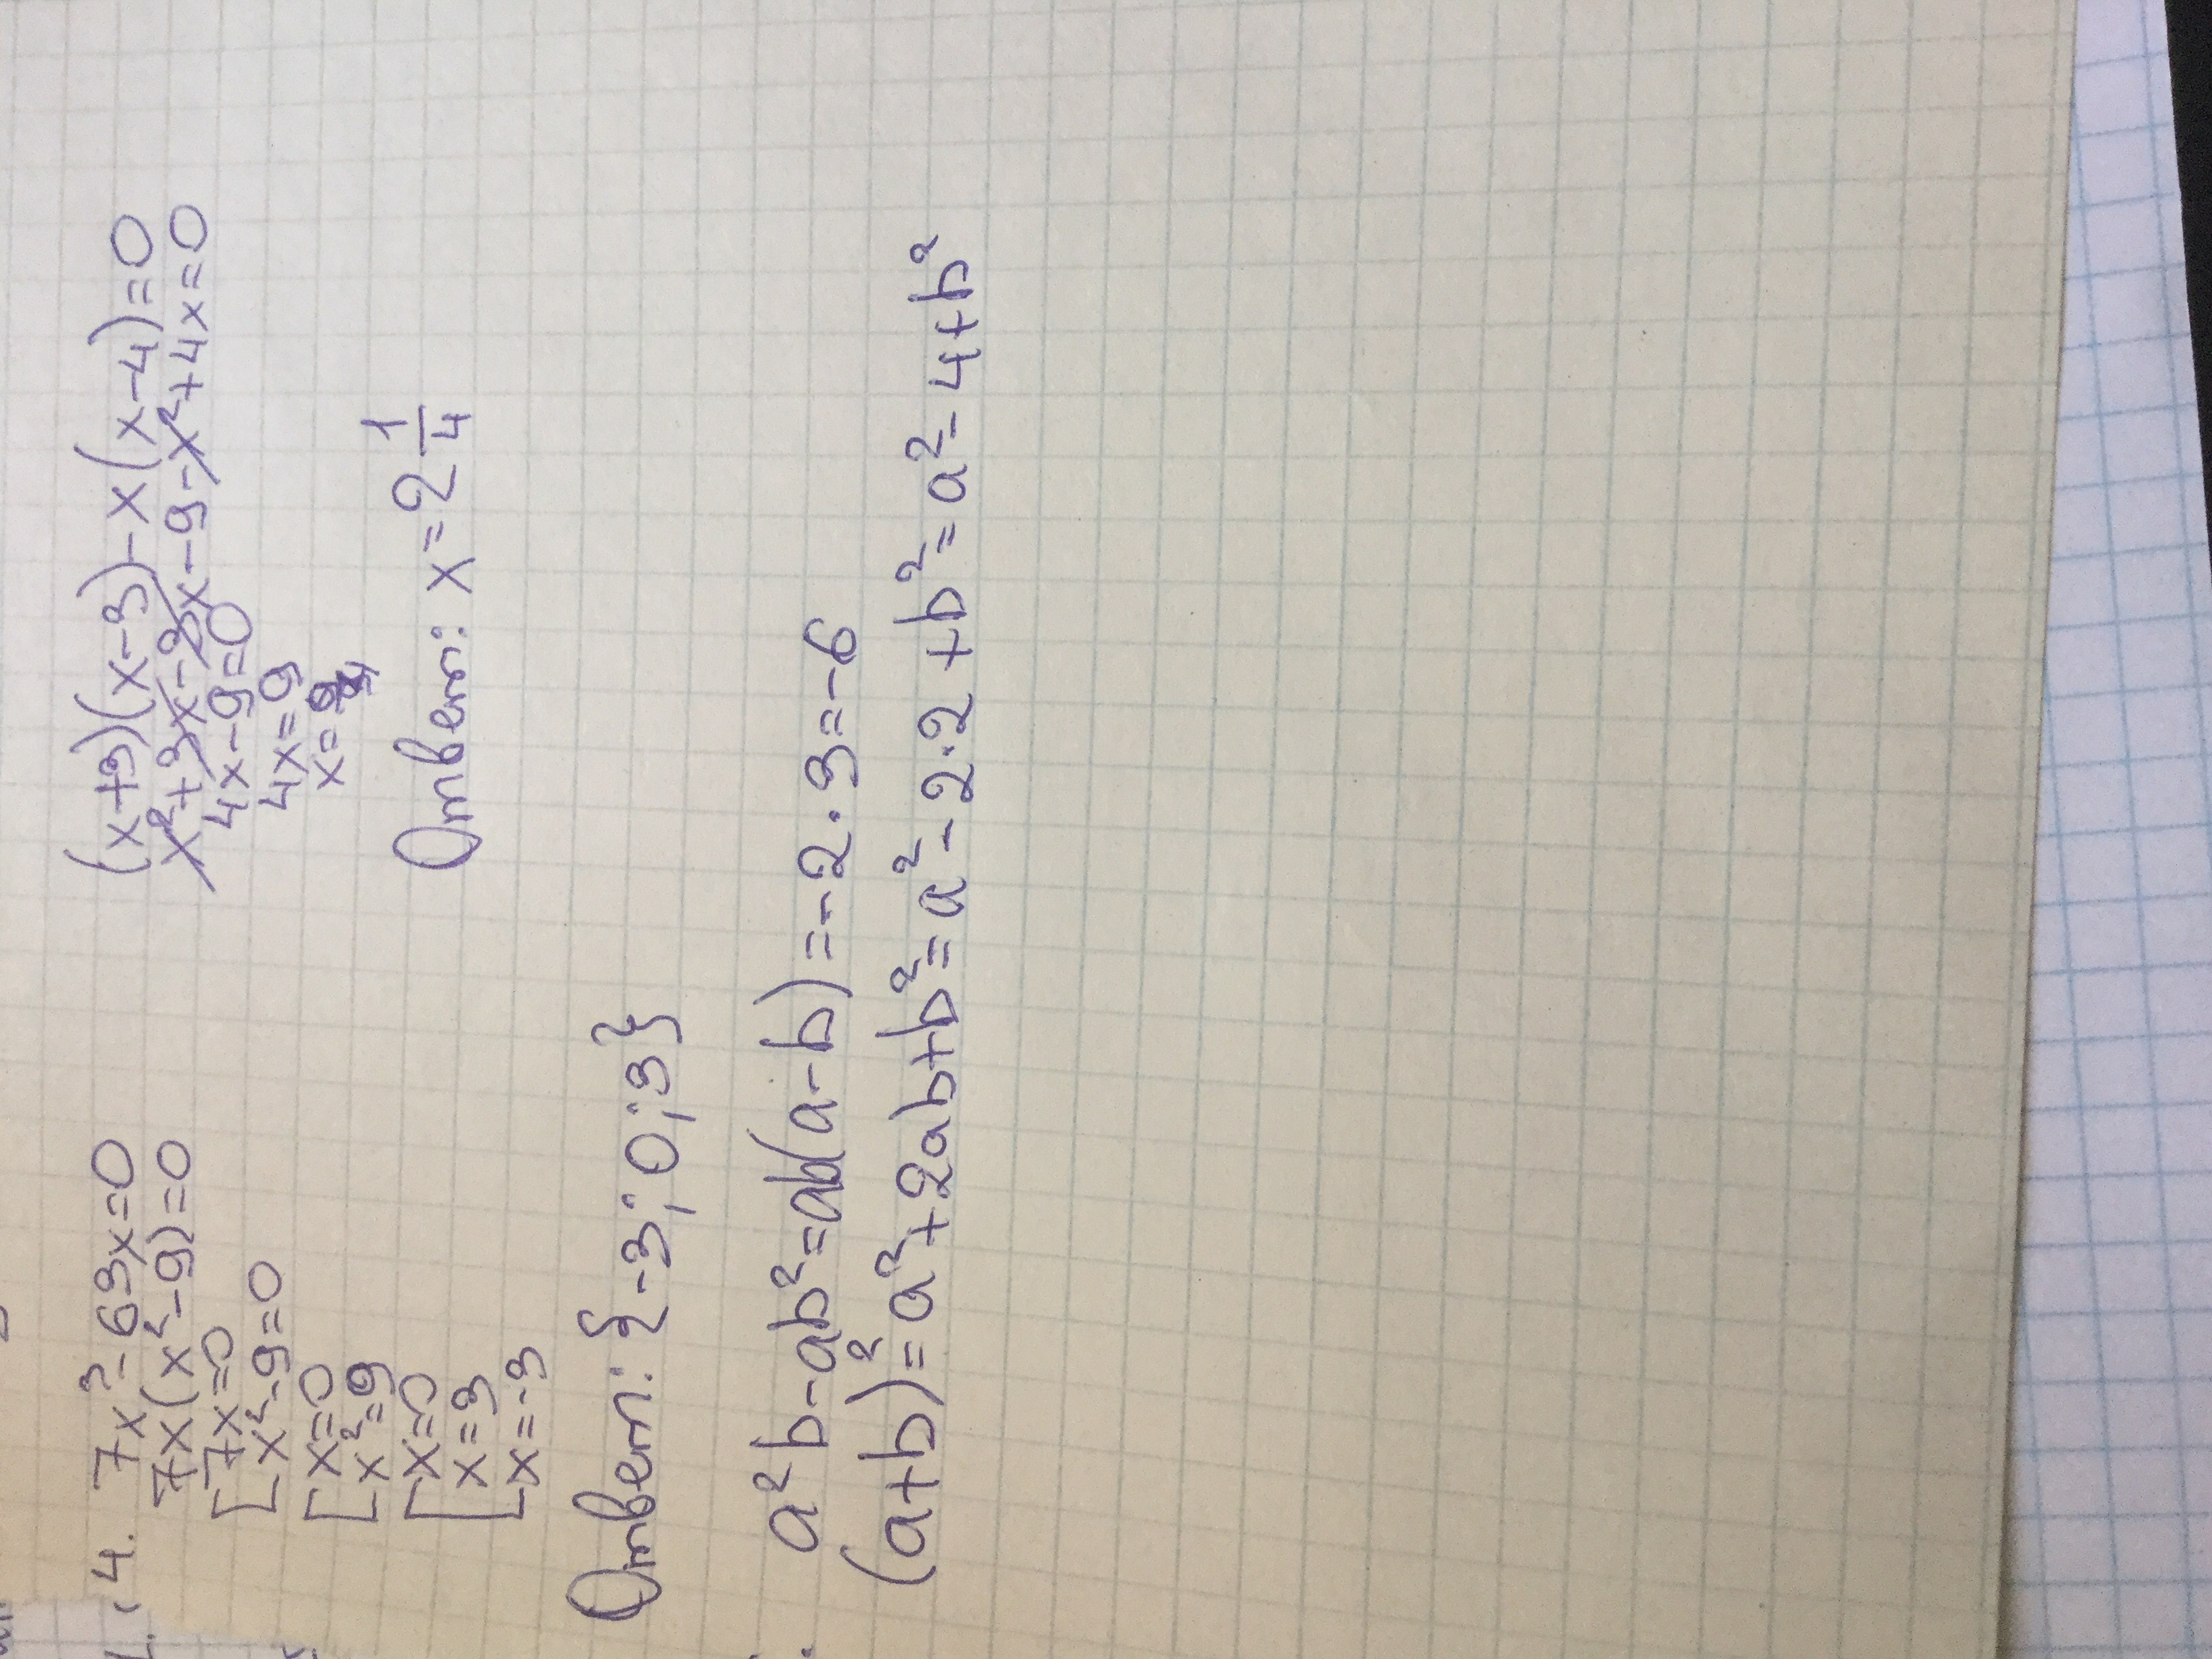 4. 7x³-63x=0
7x(x²-9)=0
[7x=0
x²-9=0
[x=0
x²=9
[x=0
x=3
x=-3
Ответ: {-3; 0; 3}
(x+3)(x-3)-x(x-4)=0
x²+3x-3x-9-x²+4x=0
4x-9=0
4x=9
x=
Ответ: x=2 1/4
a²b-ab²=ab(a-b)=-2·3=-6
(a+b)²=a²+2ab+b²=a²-2·2+b²=a²-4+b²